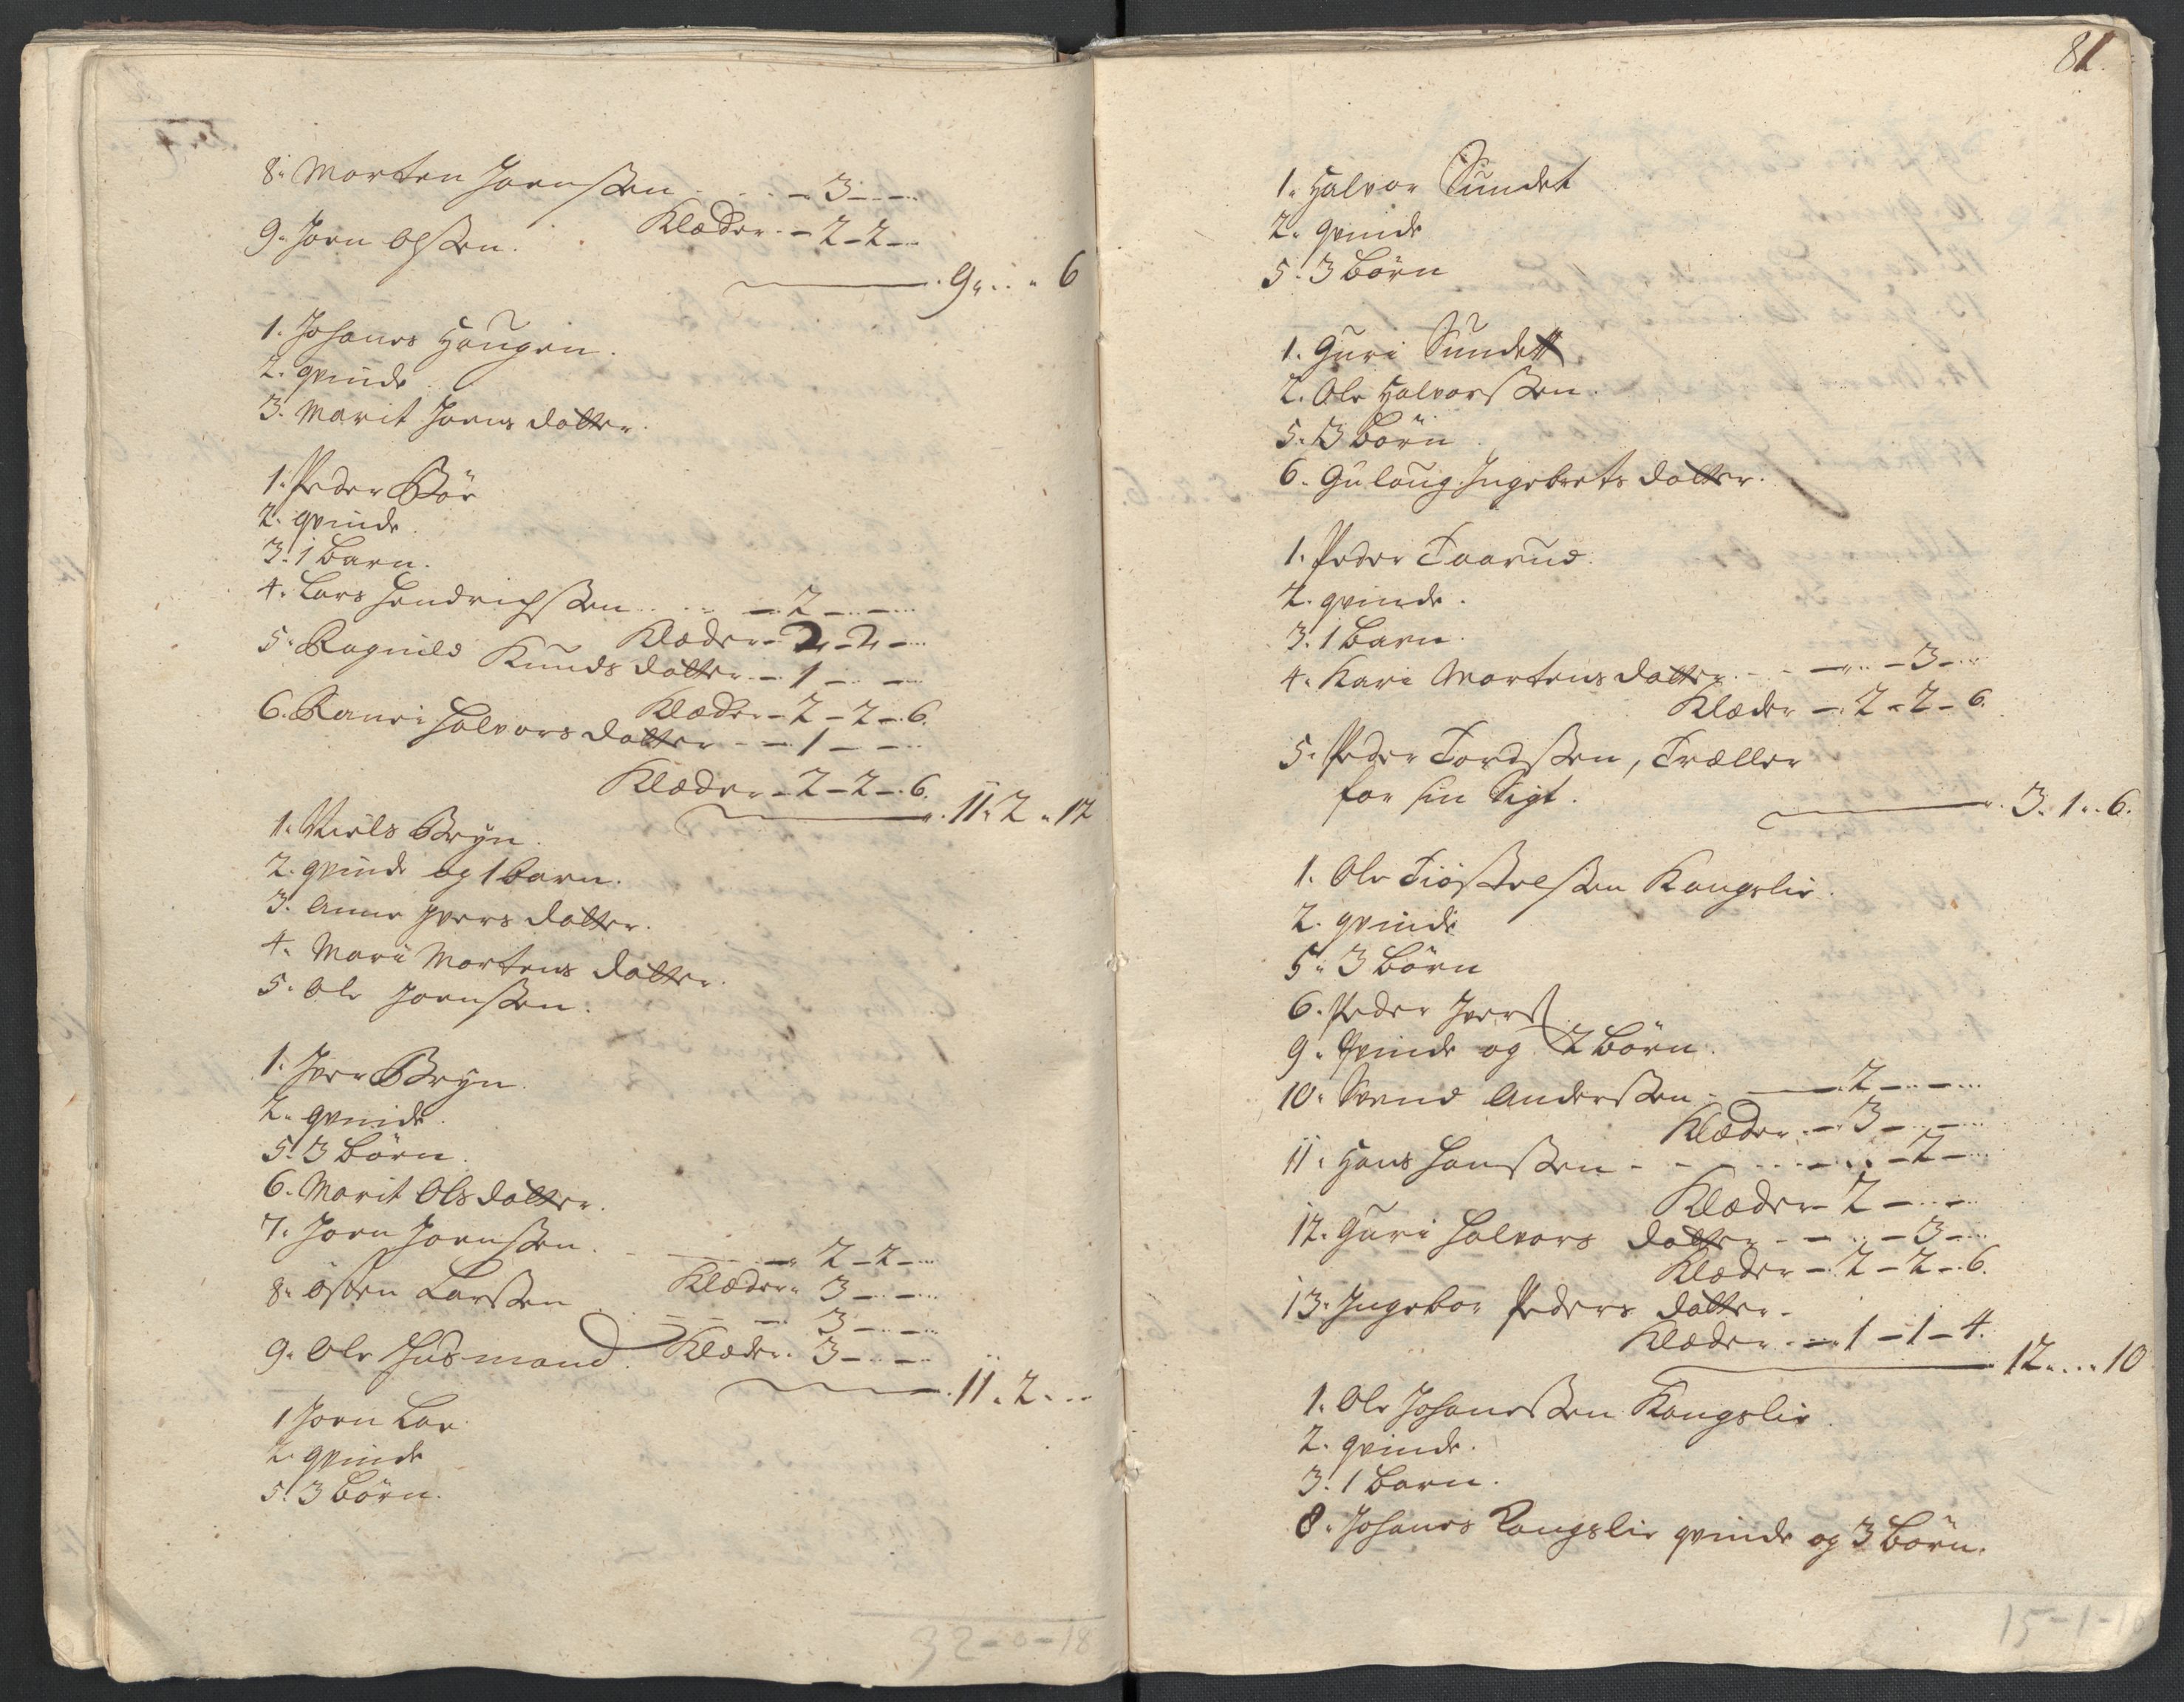 8. Morten Joenßen . . . – 3 – –
Klæder. – 2 – 2 –
9. Joen Olßen.
9 " . . " 6
1. Johanes Haugen.
2. qvinde
3. Marit Joens datter.
1. Peder Bör
2. qvinde
3. 1 barn.
4. Lars Hendrichßen . . . – 2 – –
Klæder – 2 – 2 –
5. Ragnild Knuds datter – 1 – –
Klæder – 2 – 2 – 6.
6. Ranri Halvors datter – – 1 – –
Klæder – 2 – 2 – 6.
11. 2 " 12
1. Niels Bryn.
2. qvinde og 1 barn.
3. Anne Ivers datter.
4. Mari Mortens datter.
5. Ole Joenßen.
1. Iver Bryn.
2. qvinde.
5. 3 börn.
6. Marit Ols datter.
7. Joen Joenßen. – 2 – 2 –
Klæder " 3 – –
8. Osten Larßen – – 3 – –
Klæder. 3 – –
9. Ole Husmand.
11. 2 . .
1 Joen Loe.
2. qvinde
5. 3 börn.
32 – 0 – 18
81.
1. Halvor Sundet
2. qvinde
5. 3 börn
1. Guri Sundet
2. Ole Halvorßen.
5. 3 börn
6. Gulaug Ingebrets datter.
1. Peder Taarud.
2. qvinde.
3. 1 barn.
4. Kari Mortens datter. – – – 3 –
Klæder – 2 – 2 – 6.
5. Peder Tordßen, Træller
for sin Sigt.
3. 1 . . 6.
1. Ole Tiöstelßen Kongslie.
2. qvinde
5. 3 börn
6. Peder Iverß
9. Qvinde og 2 börn.
10. Svend Anderßen – 2 – –
Klæder. – 3 – –
11. Hans Hanßen – – – – – 2 –
Klæder – 2 – –
12. Guri Halvors datter – – – 3 –
Klæder – 2 – 2 – 6.
13. Ingebor Peders datter –
Klæder . – 1 – 1 – 4.
12 . . . 10
1. Ole Johaneßen Kongslie.
2. qvinde.
3. 1 barn.
8. Johanes Kongslie qvinde og 3 börn.
15 – 1 – 1